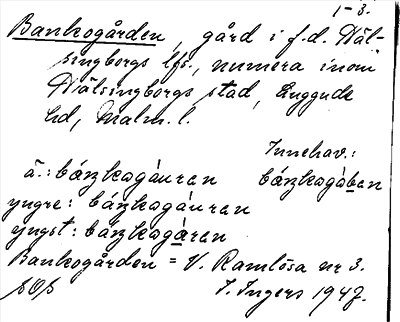 1-3.
Bankogården, gård i f.d. Häl-
singborgs lfs., numera inom
Hälsingborgs stad, Luggude
hd, Malm. l.
Innehav.:
ä.: báŋkagàuran báŋkagàban
yngre: báŋkagàuran
yngst: báŋkagàran
Bankogården = V. Ramlösa nr 3.
SOS I. Ingers 1947.